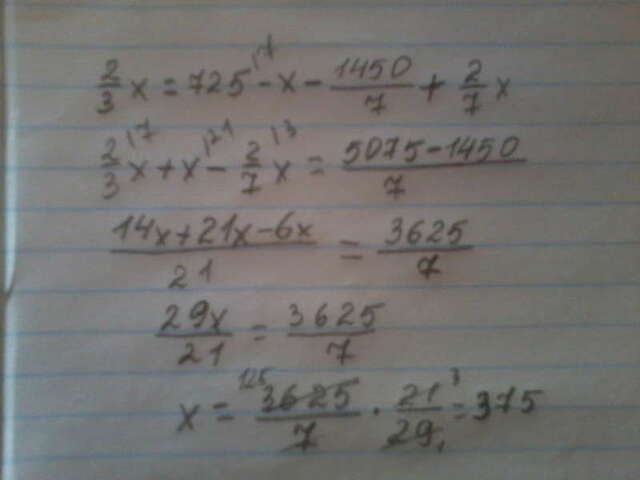 2/3 x = 725 \7 - x - 1450/7 + 2/7 x
2/3 \7 x + x \21 - 2/7 \3 x = (5075 - 1450)/7
(14x + 21x - 6x)/21 = 3625/7
29x/21 = 3625/7
x = 3625 125/7 · 21 3/29 1 = 375